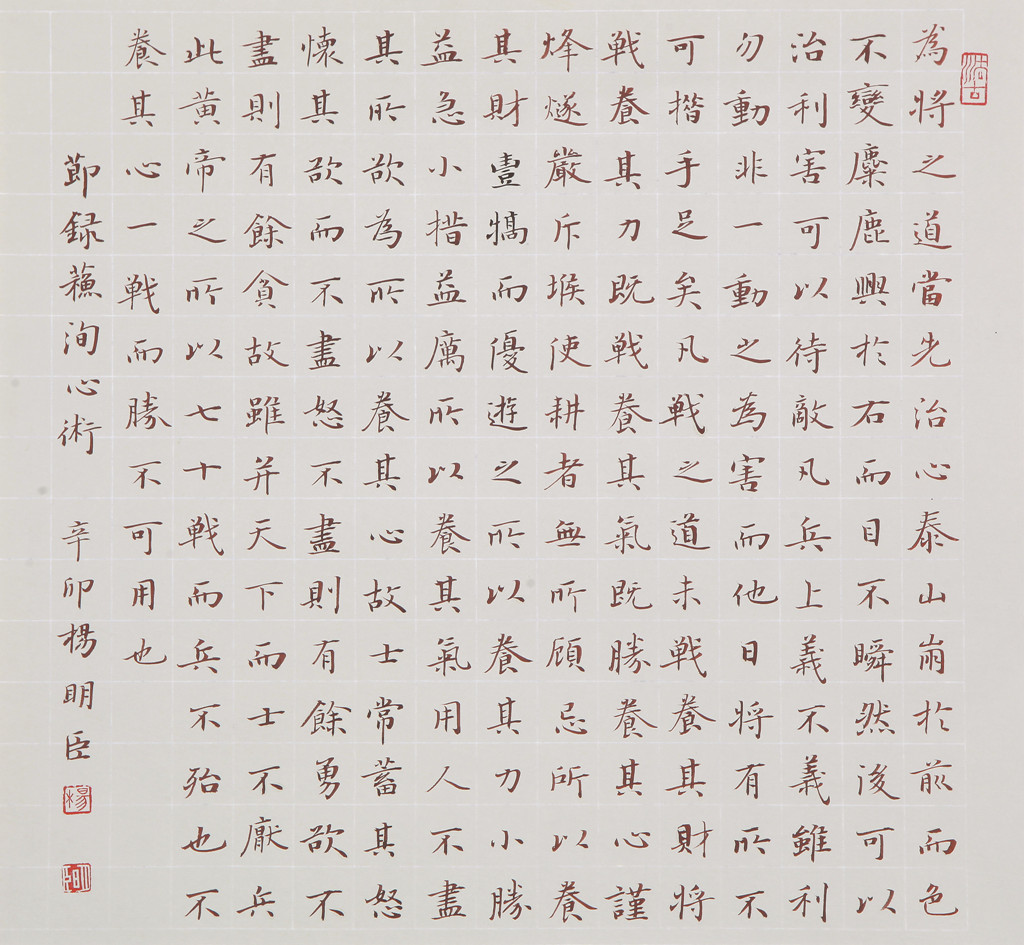 為將之道當先治心泰山崩於前而色
不變麋鹿興於右而目不瞬然後可以
治利害可以待敵凡兵上義不義雖利
勿動非一動之為害而他日將有所不
可揩手足矣凡戦之道未戦養其財將
戦養其力既戦養其氣既勝養其心謹
烽燧嚴斥堠使耕者無所顧忌所以養
其財豐犒而優遊之所以養其力小勝
益急小措益厲所以養其氣用人不盡
其所欲為所以養其心故士常蓄其怒
懷其欲而不盡怒不盡則有餘勇欲不
盡則有餘貪故雖并天下而士不厭兵
此黃帝之所以七十戦而兵不殆也不
養其心一戦而勝不可用也
節録蘇洵心術 辛卯楊明臣
楊